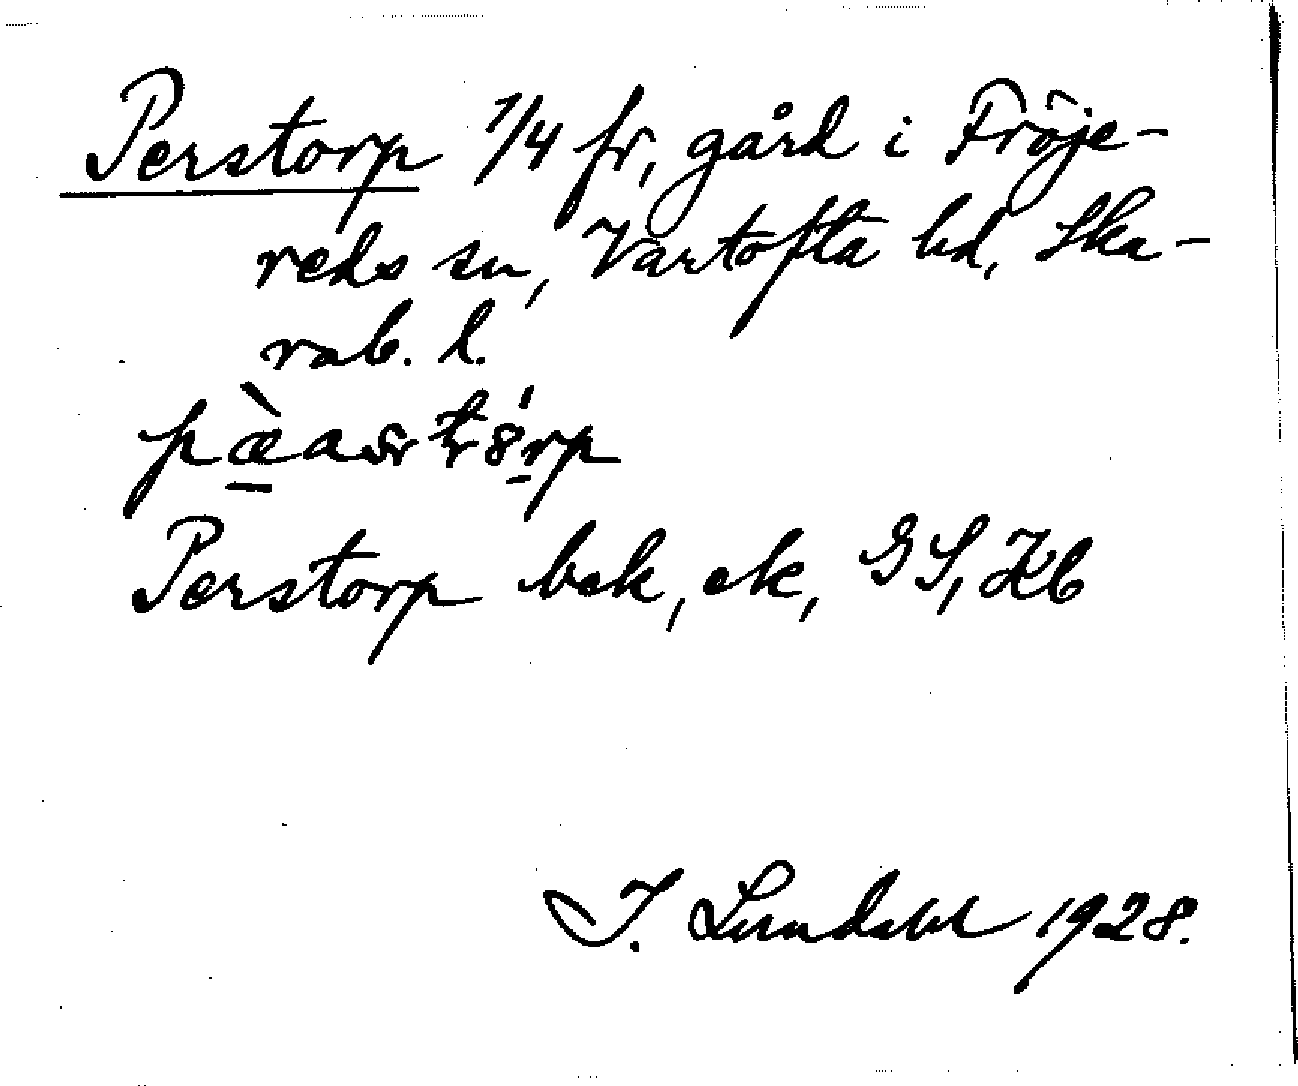 Perstorp 1/4 fr, gård i Fröje-
reds sn, Vartofta hd, Ska-
rab. l.
Perstorp bek, ek, GS, Kb
I. Lundahl 1928.